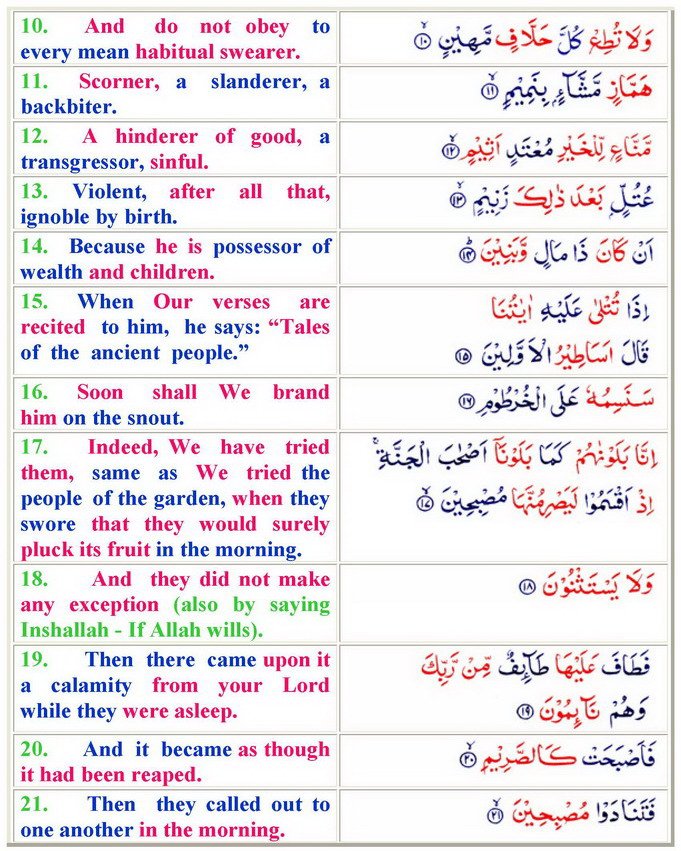 10. And do not obey to
every mean habitual swearer.
وَلَا تُطِعْ كُلَّ حَلَّافٍ مَّهِيْنٍ ۙ‏﴿۱۰﴾
11. Scorner, a slanderer, a
backbiter.
هَمَّازٍ مَّشَّآءٍۭ بِنَمِيْمٍ ۙ‏﴿۱۱﴾
12. A hinderer of good, a
transgressor, sinful.
مَّنَّاعٍ لِّلْخَيْرِ مُعْتَدٍ اَثِيْمٍ ۙ‏﴿۱۲﴾
13. Violent, after all that,
ignoble by birth.
عُتُلٍّۢ بَعْدَ ذٰلِكَ زَنِيْمٍ ۙ‏﴿۱۳﴾
14. Because he is possessor of
wealth and children.
اَنْ كَانَ ذَا مَالٍ وَّبَنِيْنَ ؕ‏﴿۱۴﴾
15. When Our verses are
recited to him, he says: “Tales
of the ancient people.”
اِذَا تُتْلٰى عَلَيْهِ اٰيٰتُنَا
قَالَ اَسَاطِيْرُ الْاَوَّلِيْنَ ﴿۱۵﴾
16. Soon shall We brand
him on the snout.
سَنَسِمُهٗ عَلَى الْخُرْطُوْمِ ﴿۱۶﴾
17. Indeed, We have tried
them, same as We tried the
people of the garden, when they
swore that they would surely
pluck its fruit in the morning.
اِنَّا بَلَوْنٰهُمْ كَمَا بَلَوْنَاۤ اَصْحٰبَ الْجَنَّةِ ۚ
اِذْ اَقْسَمُوْا لَيَصْرِمُنَّهَا مُصْبِحِيْنَ ۙ‏﴿۱۷﴾
18. And they did not make
any exception (also by saying
Inshallah - If Allah wills).
وَلَا يَسْتَثْنُوْنَ ﴿۱۸﴾
19. Then there came upon it
a calamity from your Lord
while they were asleep.
فَطَافَ عَلَيْهَا طَآٮِٕفٌ مِّنْ رَّبِّكَ
وَهُمْ نَآٮِٕمُوْنَ ﴿۱۹﴾
20. And it became as though
it had been reaped.
فَاَصْبَحَتْ كَالصَّرِيْمِ ۙ‏﴿۲۰﴾
21. Then they called out to
one another in the morning.
فَتَنَادَوْا مُصْبِحِيْنَ ۙ‏﴿۲۱﴾